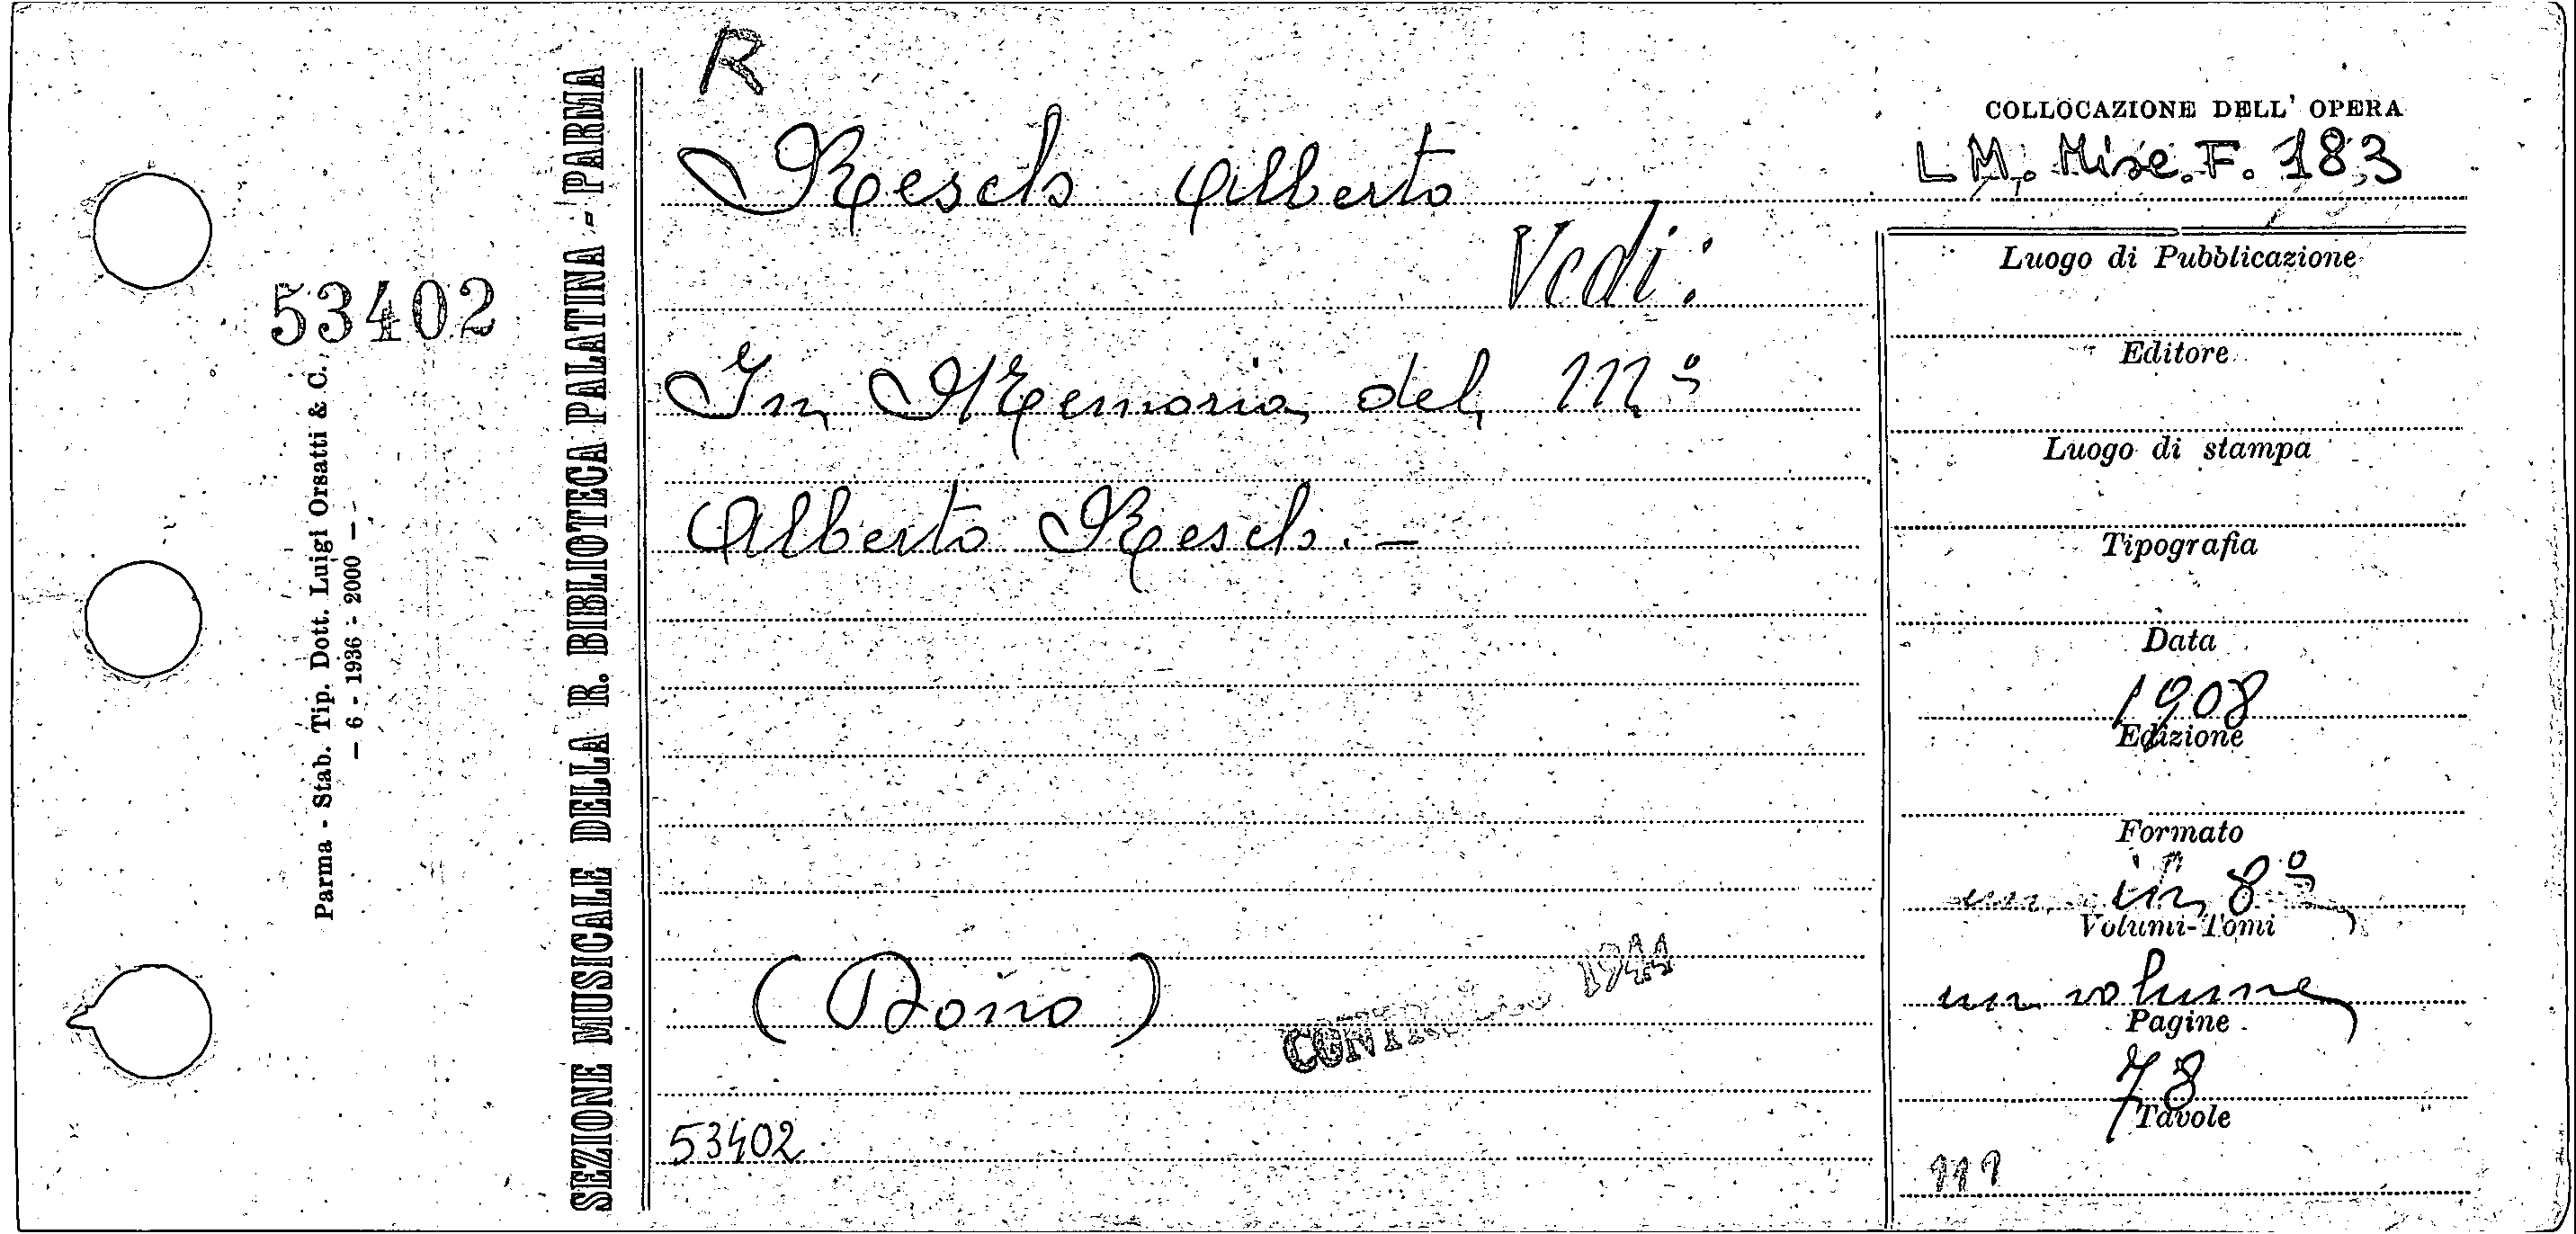 R
COLLOCAZIONE DELL' OPERA
L.M. Misc. F. 183
Resch Alberto
Vedi:
In Memoria del M.º
Alberto Resch. —
(Dono)
CONTROLLO 1944
53402
Luogo di Pubblicazione
Editore
Luogo di stampa
Tipografia
Data
1908
Edizione
Formato
in 8º
Volumi-Tomi
un volume
Pagine
78
Tavole
53402
Parma - Stab. Tip. Dott. Luigi Orsatti & C.
— 6 - 1936 - 2000 —
SEZIONE MUSICALE DELLA R. BIBLIOTECA PALATINA - PARMA